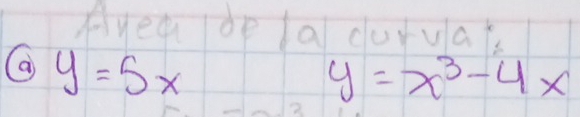 Area de la curva:
ⓐ y = 5x y = x³ - 4x